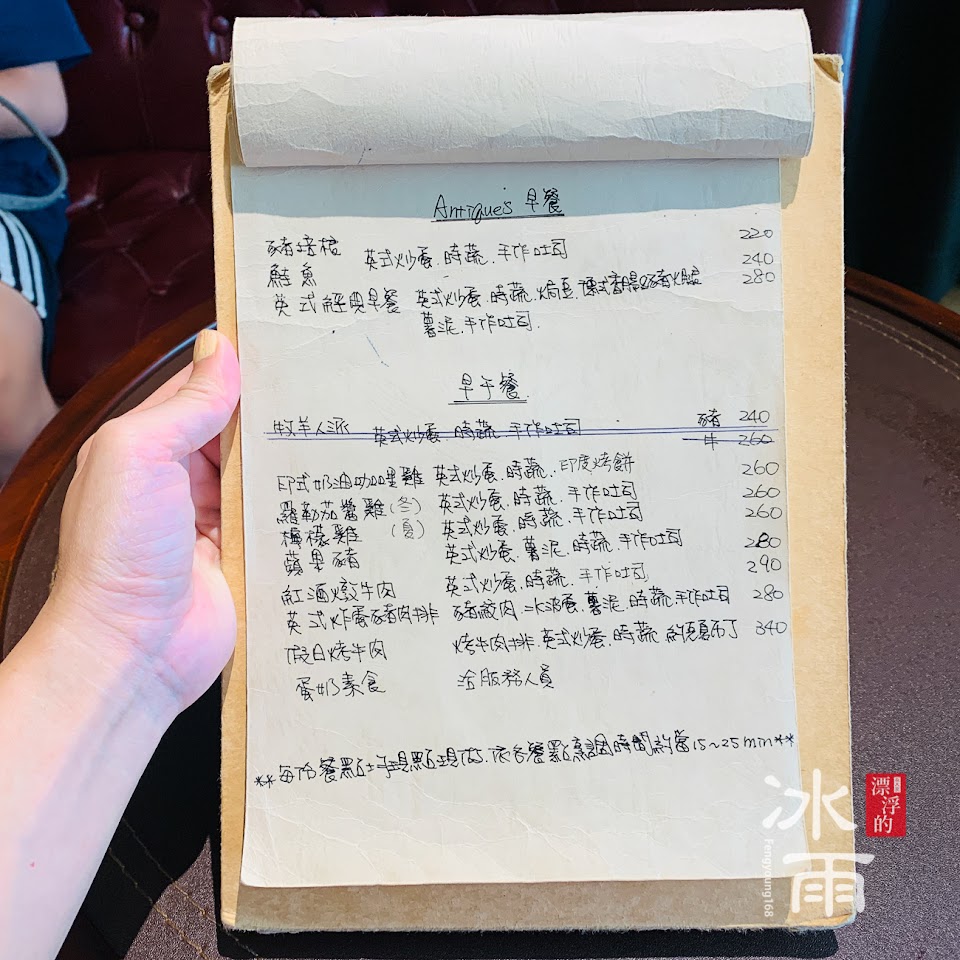 Antique's 早餐
豬培根 220
英式炒蛋.時蔬.手作吐司
鮭魚 240
英式經典早餐 英式炒蛋.時蔬.焗豆.德式香腸 豬火腿 280
薯泥.手作吐司.
早午餐
牧羊人派 英式炒蛋 時蔬 手作吐司 豬 240
牛 260
印式奶油咖哩雞 英式炒蛋.時蔬.印度烤餅 260
羅勒茄醬雞(冬) 英式炒蛋.時蔬.手作吐司 260
檸檬雞 (夏) 英式炒蛋.時蔬.手作吐司 260
蘋果豬 英式炒蛋.薯泥.時蔬.手作吐司 280
紅酒燉牛肉 英式炒蛋.時蔬.手作吐司 290
英式炸蛋豬肉排 豬絞肉.水波蛋.薯泥.時蔬.手作吐司 280
假日烤牛肉 烤牛肉排.英式炒蛋.時蔬.約克夏布丁 340
蛋奶素食 洽服務人員
**每份餐點均現點現做.依各餐點烹調時間約當15~25min**
冰雨
漂浮的
Fengyoung168